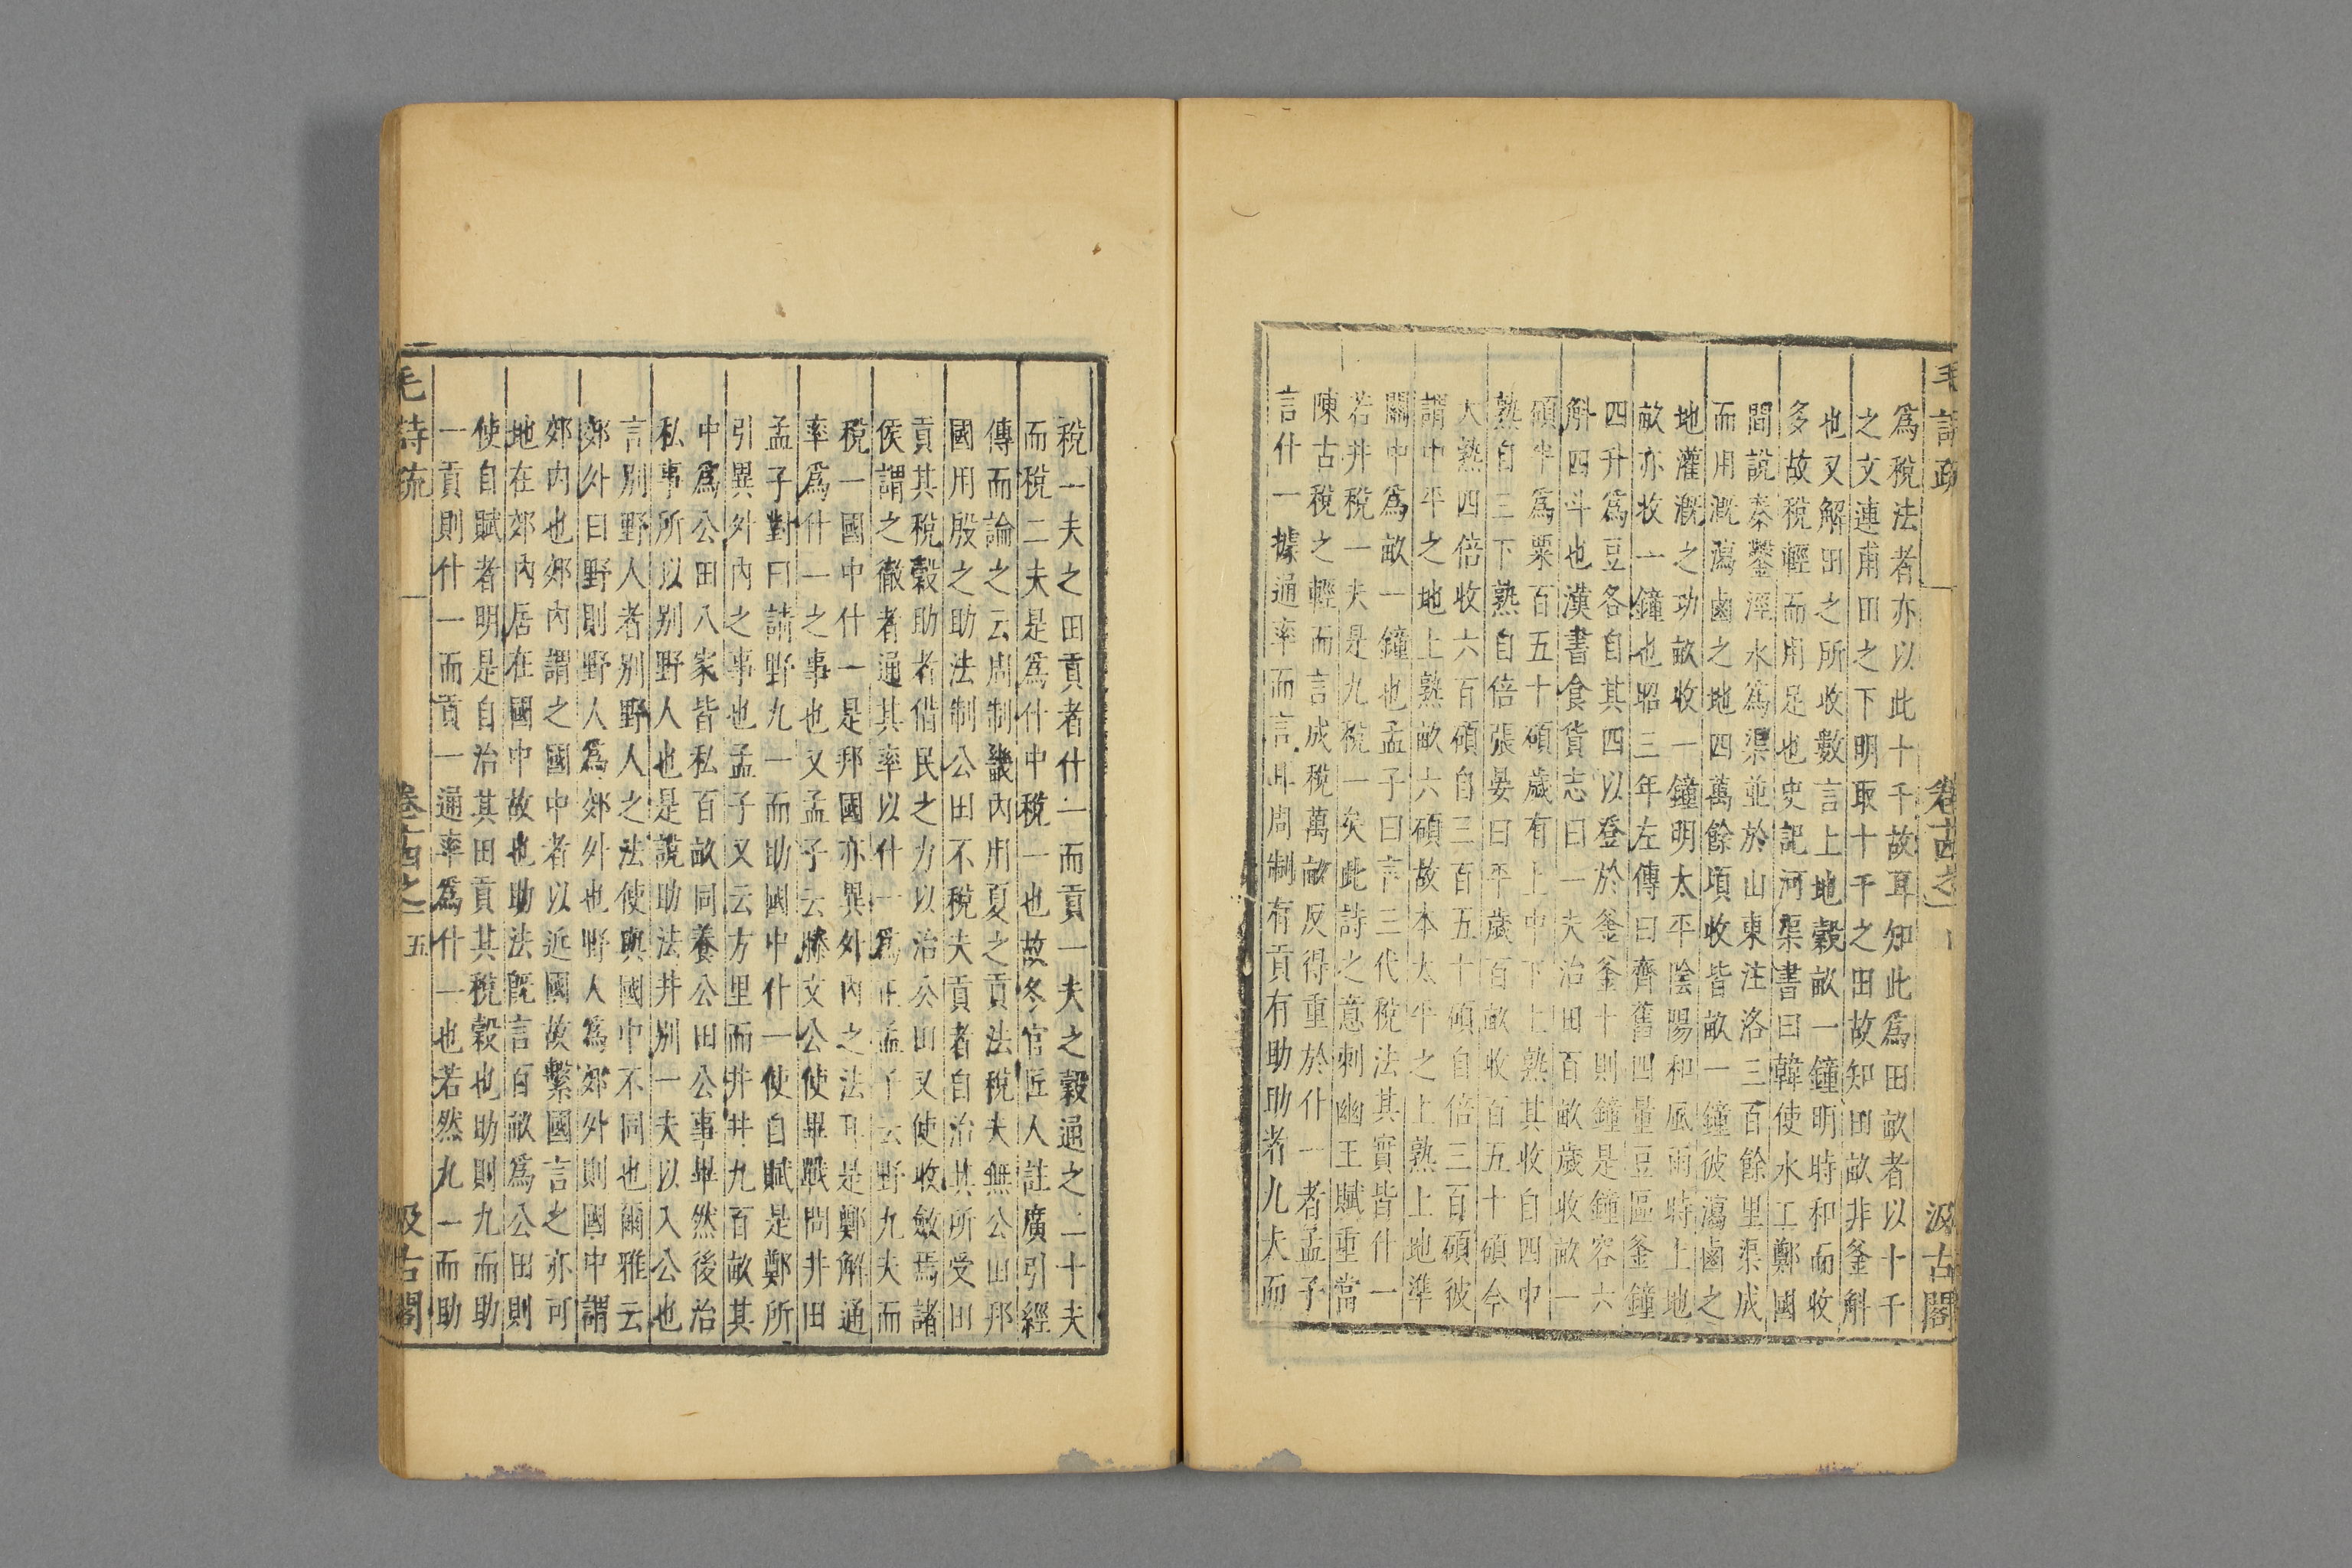 毛詩疏 卷十四之一 汲古閣
爲稅法者亦以此十千故耳知此爲田畝者以十千
之文連甫田之下明取十千之田故知田畝非釜斛
也又解田之所收數言上地穀畝一鐘明時和而收
多故稅輕而用足也史記河渠書曰韓使水工鄭國
間說秦鑿涇水爲渠並於山東注洛三百餘里渠成
而用溉瀉鹵之地四萬餘頃收皆畝一鐘彼瀉鹵之
地灌溉之功畝收一鐘明太平陰陽和風雨時上地
畝亦收一鐘也昭三年左傳曰齊舊四量豆區釜鐘
四升爲豆各自其四以登於釜釜十則鐘是鐘容六
斛四斗也漢書食貨志曰一夫治田百畝歲收畝一
碩半爲粟百五十碩歲有上中下上熟其收自四中
熟自三下熟自倍張晏曰平歲百畝收百五十碩今
大熟四倍收六百碩自三百五十碩自倍三百碩彼
謂中平之地上熟畝六碩故本太平之上熟上地準
關中爲畝一鐘也孟子曰言三代稅法其實皆什一
若井稅一夫是九稅一矣此詩之意刺幽王賦重當
陳古稅之輕而言成稅萬畝反得重於什一者孟子
言什一據通率而言耳周制有貢有助助者九夫而
稅一夫之田貢者什一而貢一夫之穀通之二十夫
而稅二夫是爲什中稅一也故冬官匠人註廣引經
傳而論之云周制畿內用夏之貢法稅夫無公田邦
國用殷之助法制公田不稅夫貢者自治其所受田
貢其稅穀助者借民之力以治公田又使收斂焉諸
侯謂之徹者通其率以什一爲正孟子云野九夫而
稅一國中什一是邦國亦異外內之法耳是鄭解通
率爲什一之事也又孟子云滕文公使畢戰問井田
孟子對曰請野九一而助國中什一使自賦是鄭所
引異外內之事也孟子又云方里而井井九百畝其
中爲公田八家皆私百畝同養公田公事畢然後治
私事所以別野人也是說助法井別一夫以入公也
言別野人者別野人之法使與國中不同也爾雅云
郊外曰野則野人爲郊外也野人爲郊外則國中謂
郊內也郊內謂之國中者以近國故繫國言之亦可
地在郊內居在國中故也助法旣言百畝爲公田則
使自賦者明是自治其田貢其稅穀也助則九而助
一貢則什一而貢一通率爲什一也若然九一而助
毛詩疏 卷十四之一 五 汲古閣